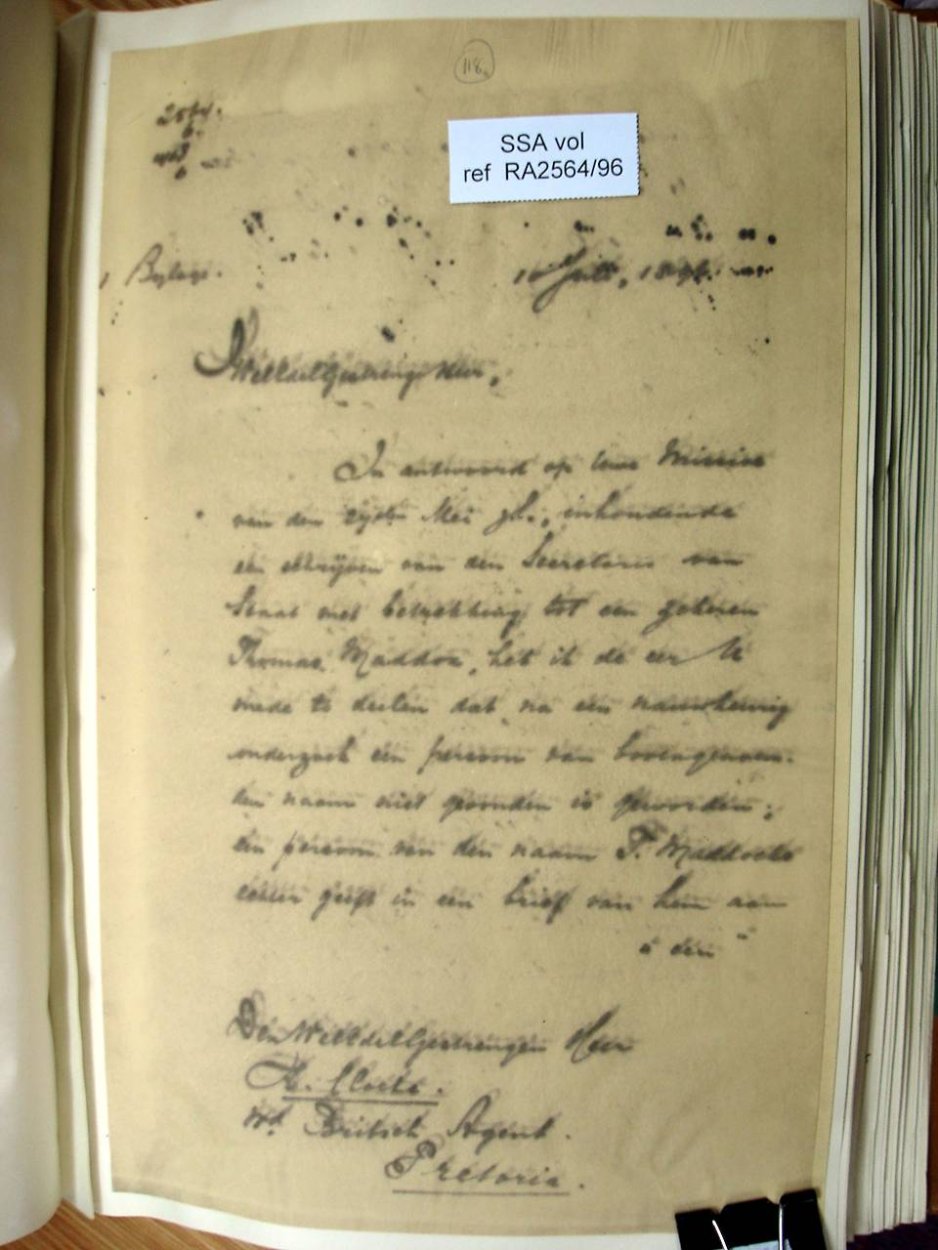 118.
SSA vol
ref RA2564/96
1 Bylage.
Juli, 1896.
WelEdelGestrenge Heer,
In antwoord op Uwe Missive
van den Mei jl., inhoudende
een schrijven van den Secretaris van
Staat met betrekking tot een zekeren
Thomas Maddox, heb ik de eer U
mede te deelen dat na een nauwkeurig
onderzoek een persoon van bovengenoem-
den naam niet gevonden is geworden;
een persoon van den naam T. Maddocks
echter geeft in een brief van hem aan
den
Den WelEdelGestrengen Heer
H. Cloete.
Wd. British Agent.
Pretoria.